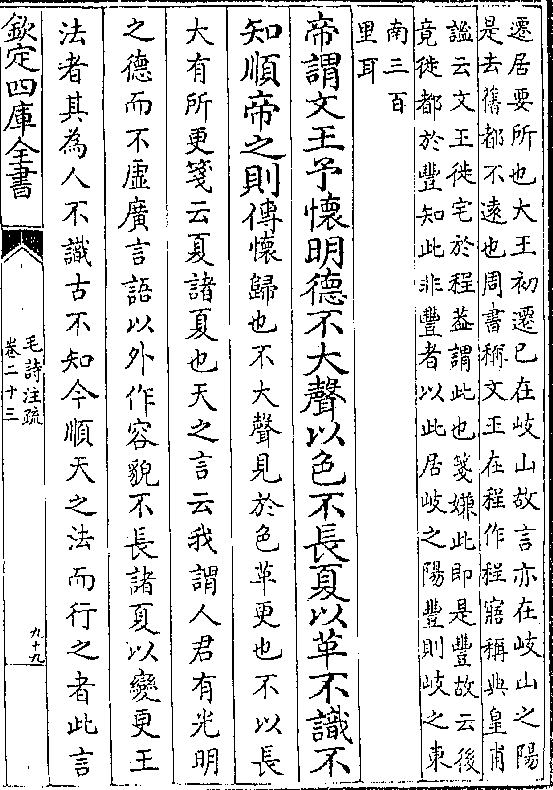 遷居要所也大王初遷已在岐山故言亦在岐山之陽
是去舊都不遠也周書稱文王在程作程寤稱典皇甫
謐云文王徙宅於程葢謂此也箋嫌此即是豐故云後
竟徙都於豐知此非豐者以此居岐之陽豐則岐之東
南三百
里耳
帝謂文王予懷明德不大聲以色不長夏以革不識不
知順帝之則傳懷歸也不大聲見於色革更也不以長
大有所更箋云夏諸夏也天之言云我謂人君有光明
之德而不虛廣言語以外作容貌不長諸夏以變更王
法者其為人不識古不知今順天之法而行之者此言
欽定四庫全書
毛詩注疏
卷二十三
九十九